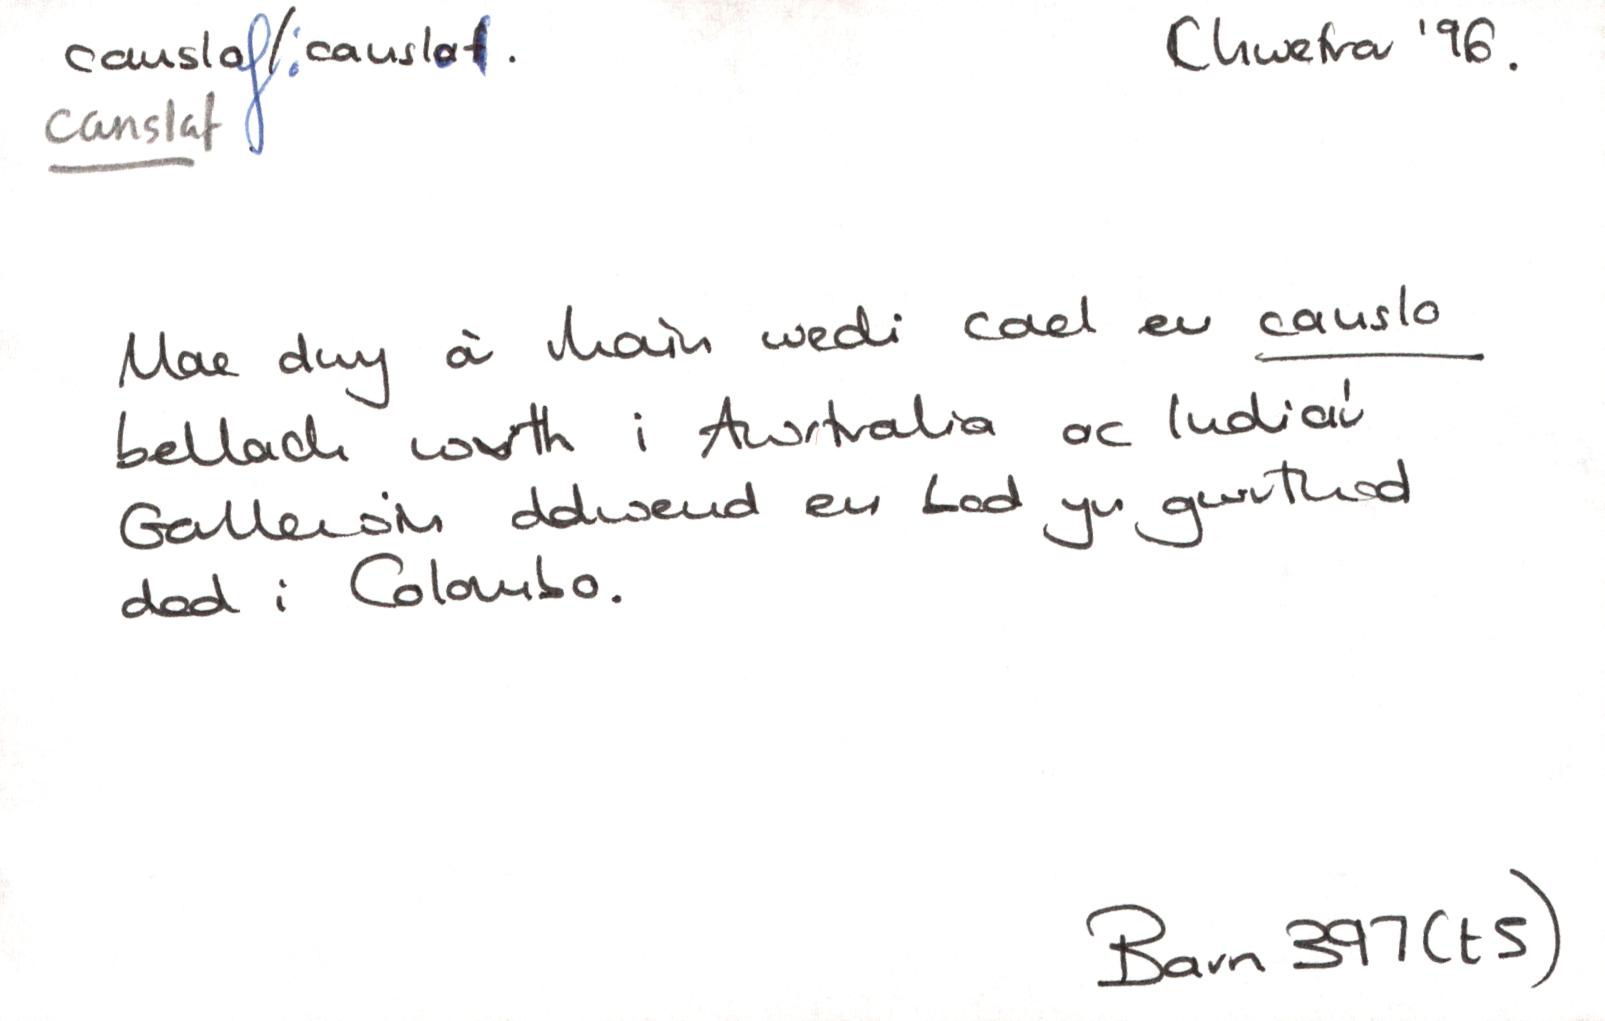 canslaf: canslaf. Chwefror '96.
canslaf
Mae dwy o'r rhain wedi cael eu canslo
bellach wrth i Awstralia ac Indiai'r
Gorllewin ddweud eu bod yn gwrthod
dod i Colombo.
Barn 397 (t 5)